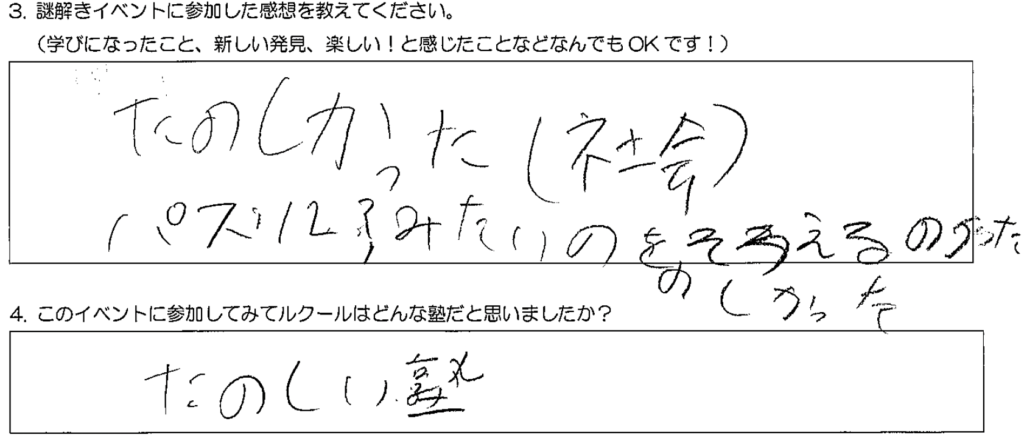 3. 謎解きイベントに参加した感想を教えてください。
（学びになったこと、新しい発見、楽しい！と感じたことなどなんでもOKです！）
たのしかった（社会）
パズルみたいのをそろえるの
のしかった
4. このイベントに参加してみてルクールはどんな塾だと思いましたか？
たのしい塾